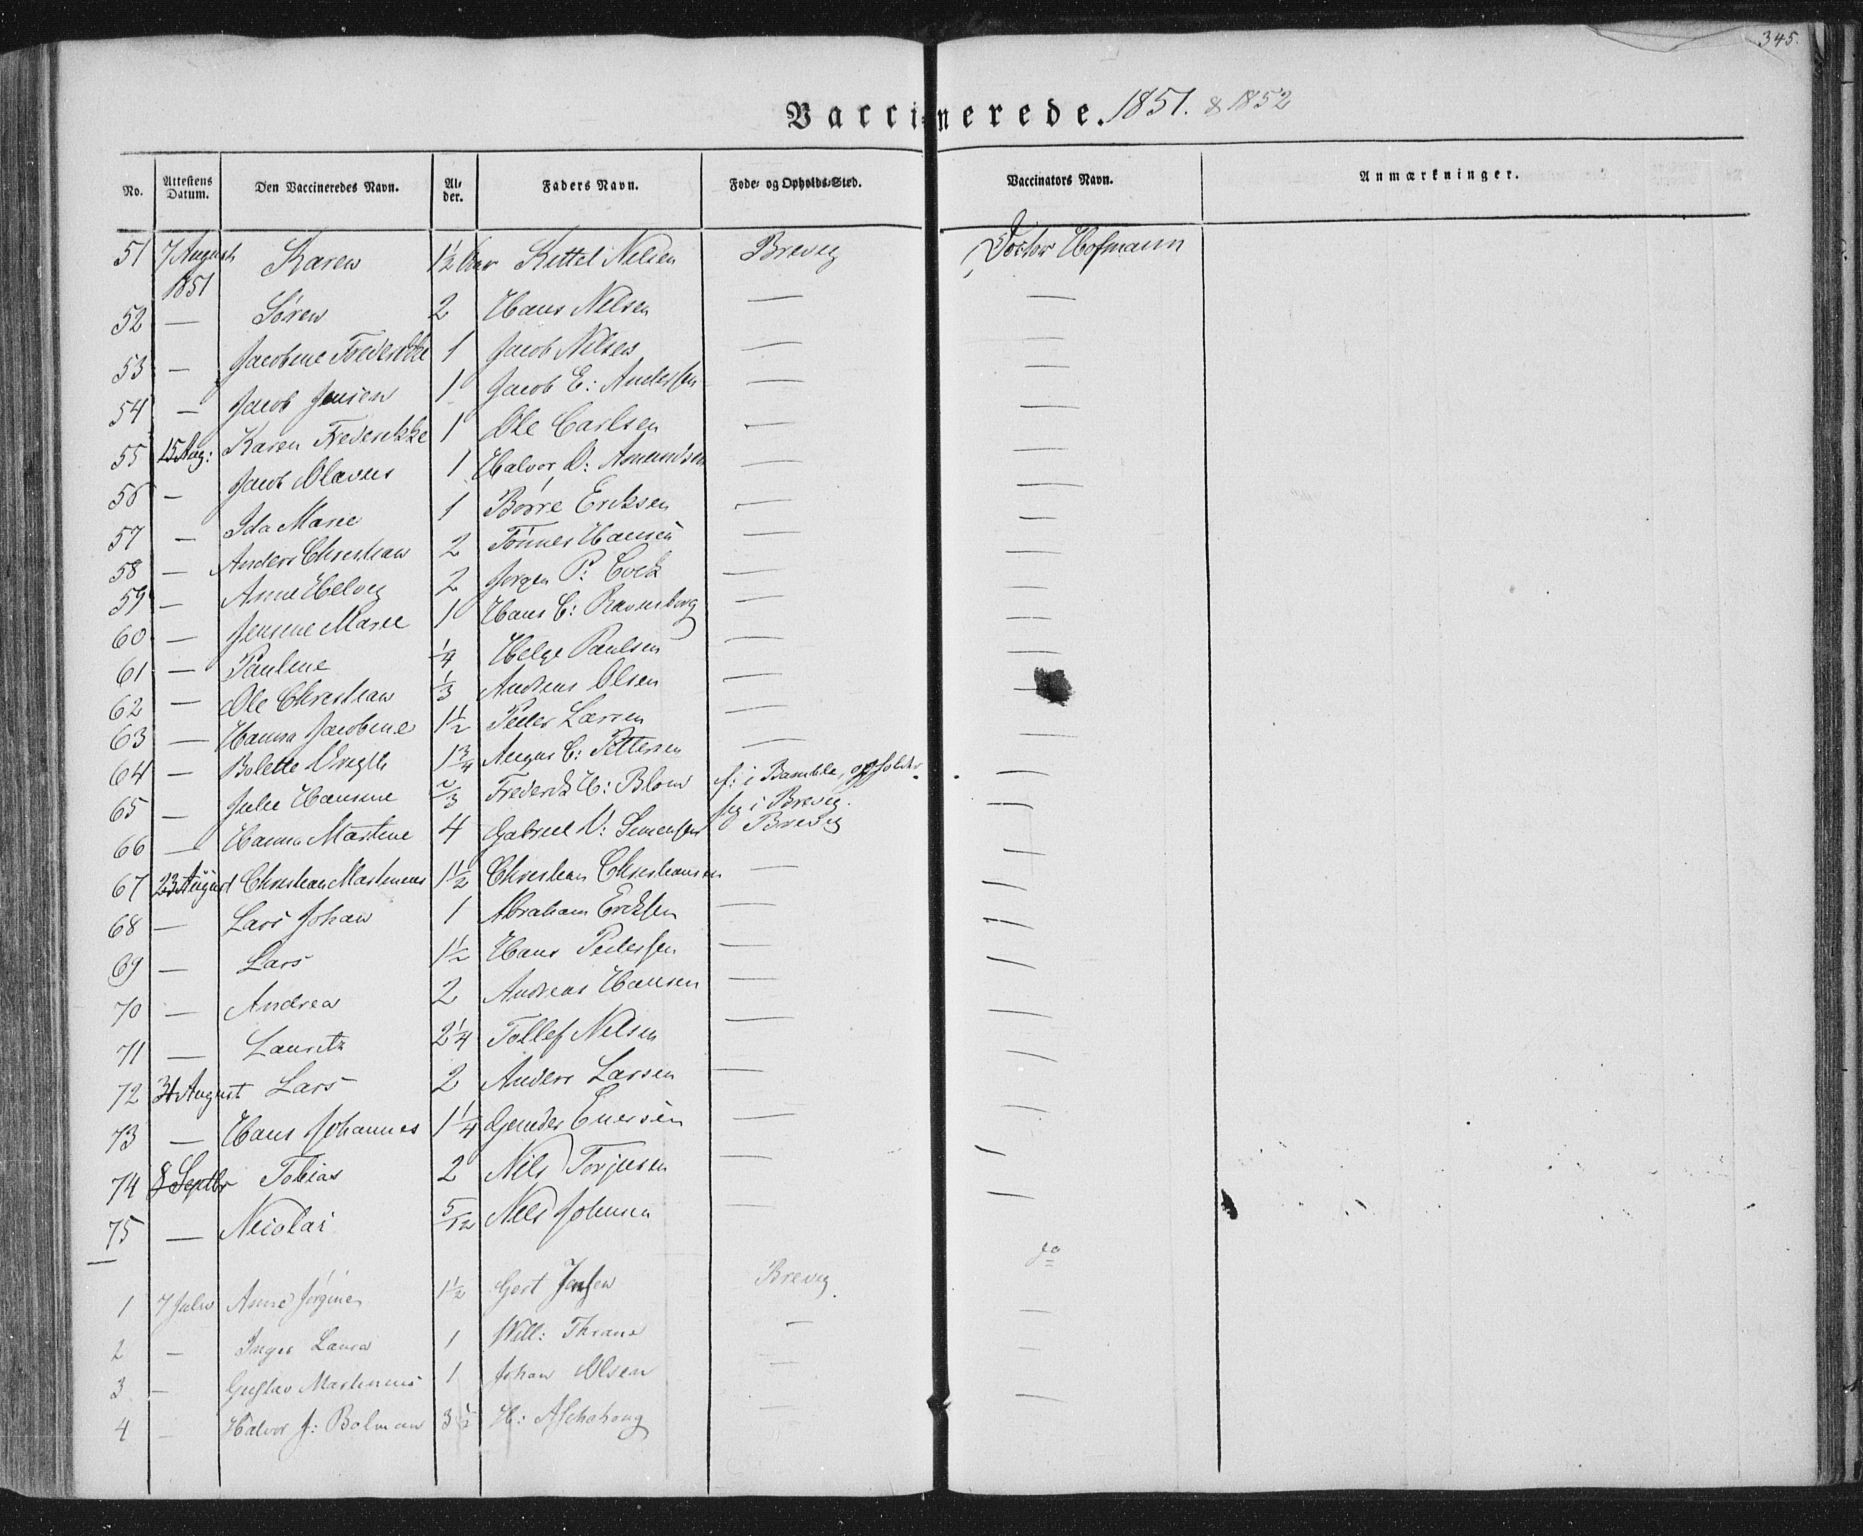 345.
Vaccinerede. 1851. & 1852
No. Attestens Datum. Den Vaccineredes Navn. Alder. Faders Navn. Føde- og Opholds-Sted. Vaccinators Navn. Anmærkninger.
51 7 August 1851 Karen 1½ Kittel Nilsen Brevig Doctor Hofmann
52 — Søren 2 Hans Nilsen — —
53 — Jacobine Frederikke 1 Jacob Nilsen — —
54 — Jacob Jensen 1 Jacob E: Andersen — —
55 15 Aug: Karen Frederikke 1 Ole Carlsen — —
56 — Jacob Olavus 1 Halvor O: Amundsen —
57 — Ida Marie 1 Børre Eriksen — —
58 — Anders Christian 2 Tønnes Hansen — —
59 — Anne Helvig 2 Jørgen P: Cock — —
60 — Jensine Marie 1 Hans C: Ravensborg — —
61 — Pauline ¼ Helge Paulsen — —
62 — Ole Christian ⅓ Andreas Olsen — —
63 — Hanna Jacobine 1½ Peder Larsen — —
64 — Bolette 1¾ August C: Pettersen — —
65 — Julie Hansine ⅔ Frederik H: Blom f: i Bamble, opholder sig i Brevig. —
66 — Hanna Martine 4 Gabriel O: Simensen Brevig —
67 23 August Christian Martinius 1½ Christian Christiansen — —
68 — Lars Johan 1 Abraham Eriksen — —
69 — Lars 1½ Hans Pedersen — —
70 — Andrea 2 Andreas Hansen — —
71 — Lauritz 2¼ Tollef Nilsen — —
72 31 August Lars 2 Anders Larsen — —
73 — Hans Johannes 1¼ Gunder Enersen — —
74 8 Septbr Tobias 2 Nils Torjusen — —
75 — Nicolai 5/12 Nils Johnsen — —
1 7 Julie Anne Jørgine 1½ Gert Jensen Brevig do
2 — Inger Laura 1 Will: Thrane — —
3 — Gustav Martinius 1 Johan Olsen — —
4 — Halvor J: Bolman 3½ H: — —